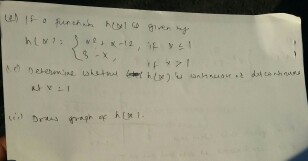 If a function h(x) is given by
h(x) = { x² + x - 12, if x ≤ 1
3 - x, if x > 1
Determine whether h(x) is continuous or discontinuous
at x = 1
ii) Draw graph of h(x).